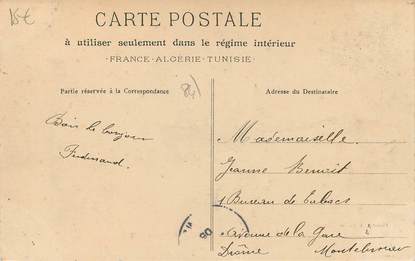 15€
CARTE POSTALE
à utiliser seulement dans le régime intérieur
· FRANCE - ALGÉRIE - TUNISIE ·
Partie réservée à la Correspondance
84)
Adresse du Destinataire
Bons le bonjour
Ferdinand.
Mademoiselle.
Jeanne Benoit
Bureau de tabacs
Avenue de la Gare
Drôme
08